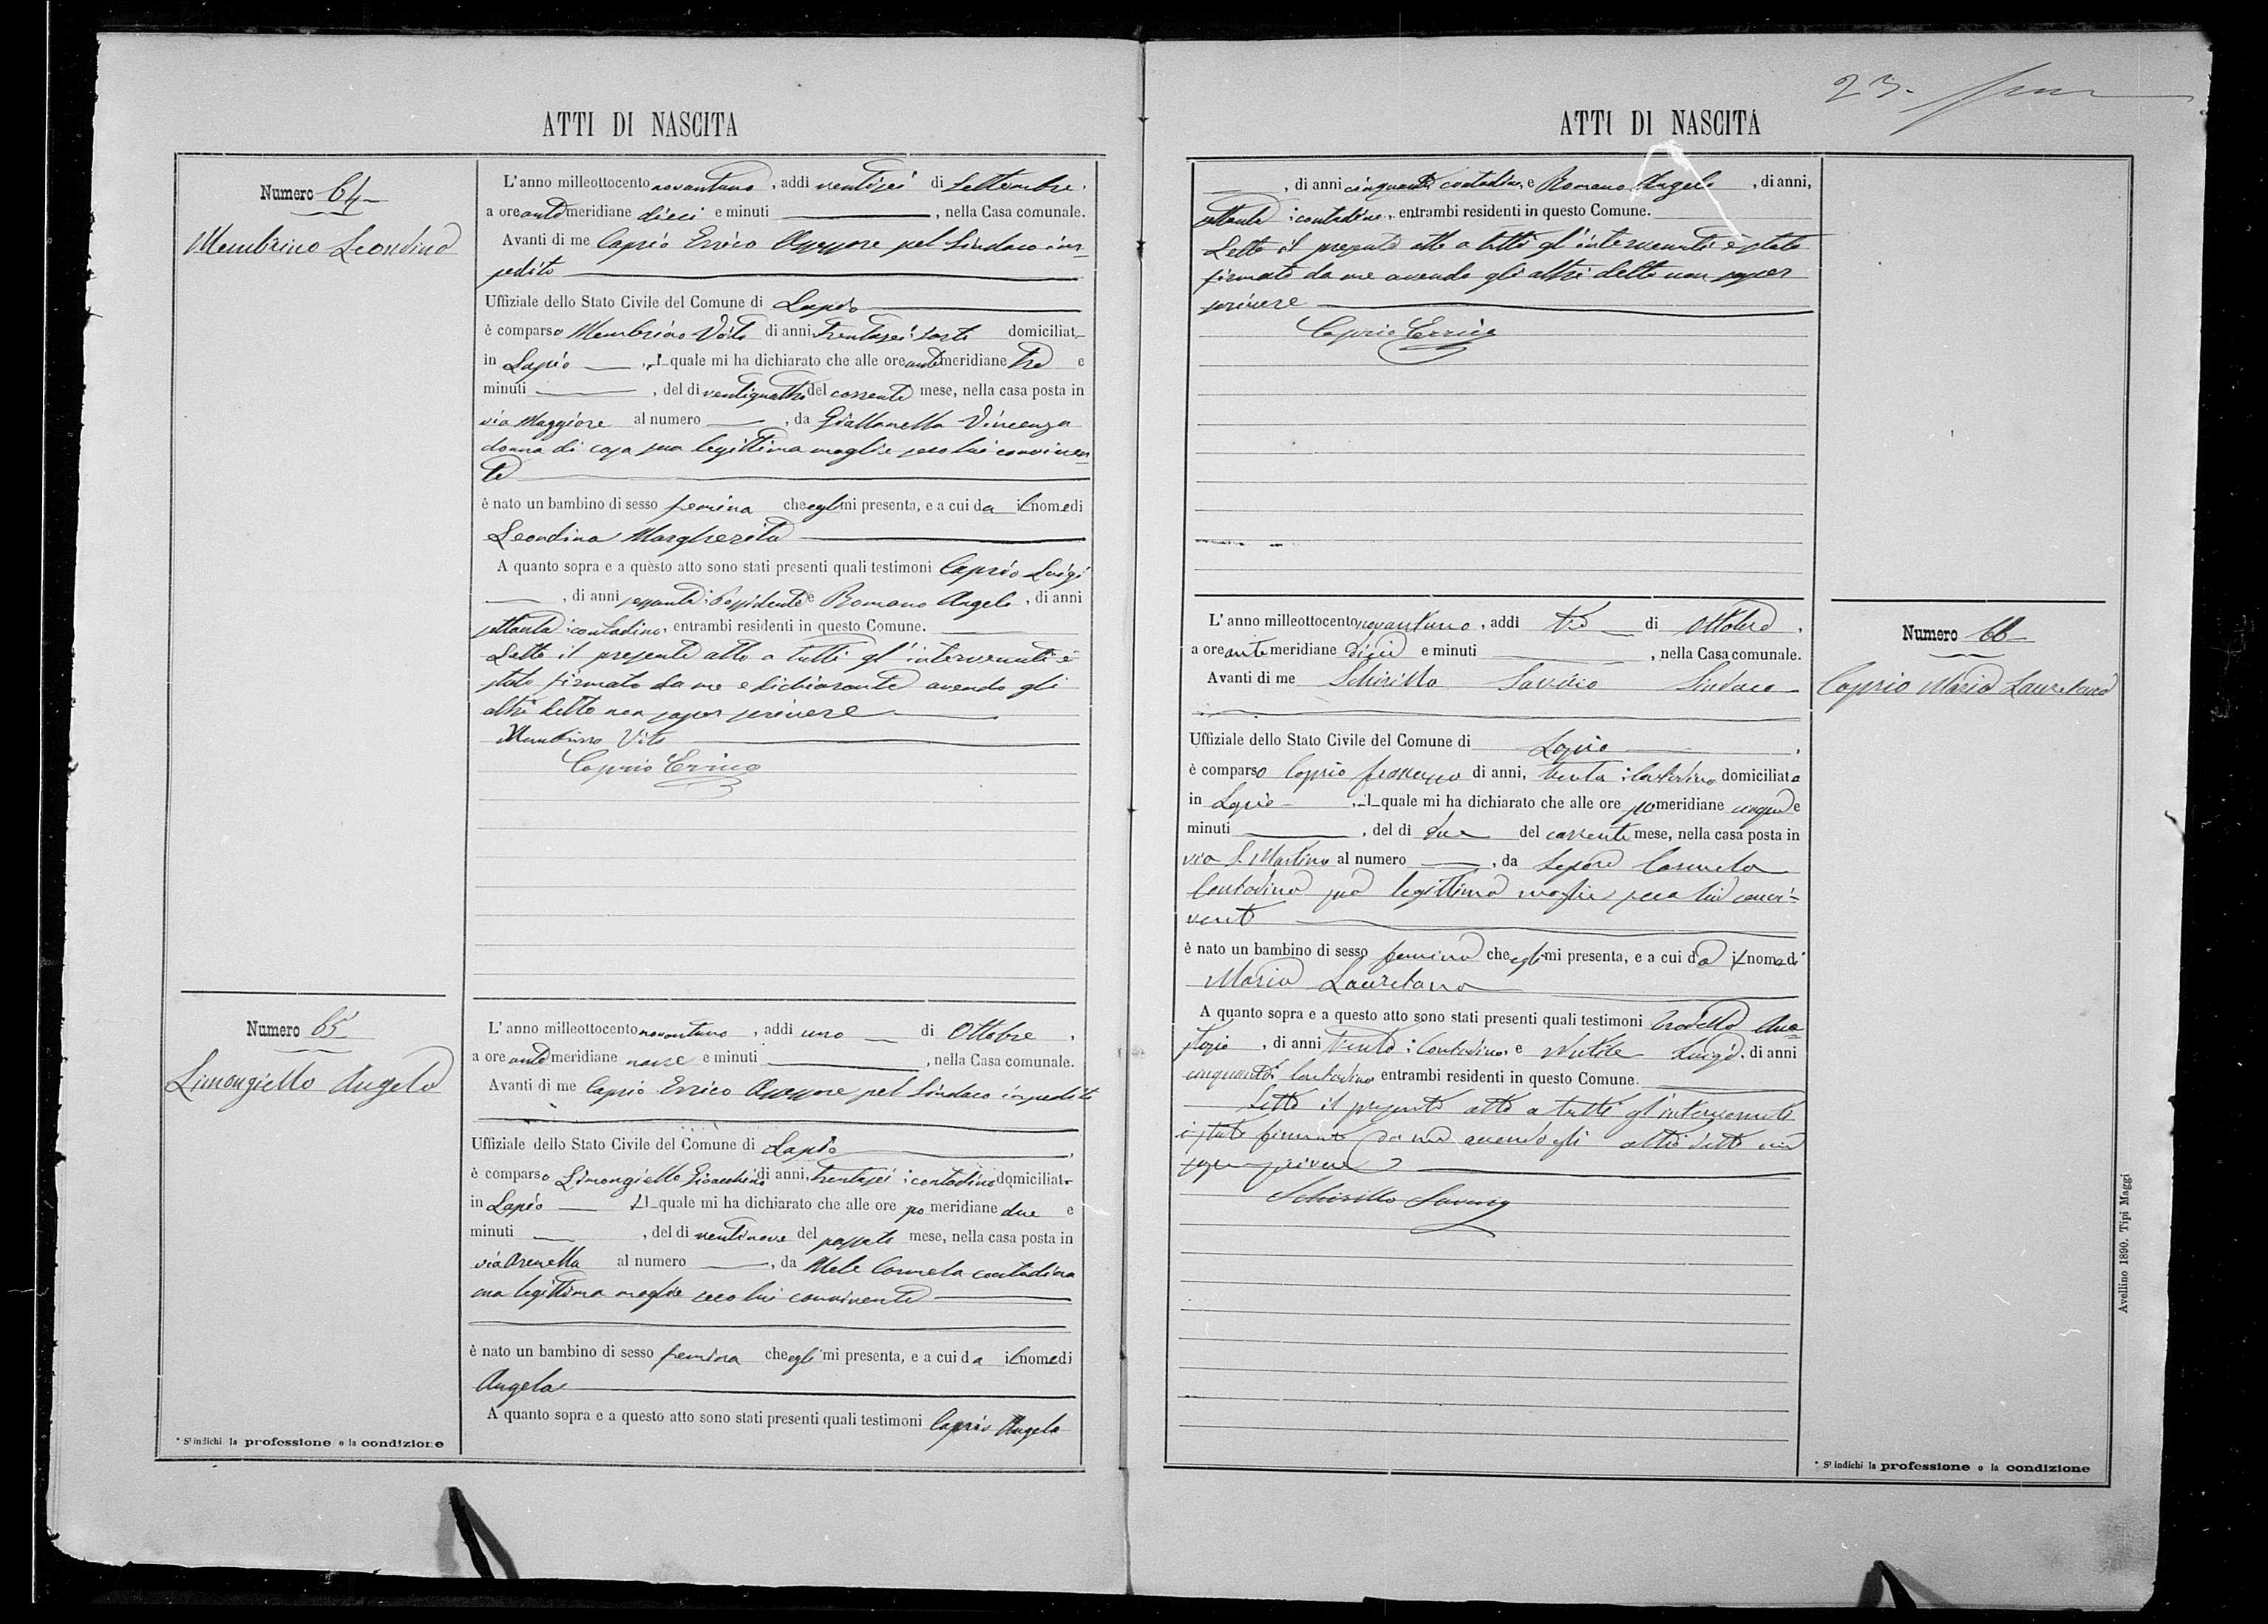 23.
ATTI DI NASCITA
Numero 64
Membrino Leondina
L'anno milleottocento novantuno, addì ventisei di Settembre,
a ore antemeridiane dieci e minuti , nella Casa comunale.
Avanti di me Caprio Errico Assessore pel Sindaco im-
pedito
Uffiziale dello Stato Civile del Comune di Lapio
è comparso Membrino Vito di anni trentasei: sarto domiciliat
in Lapio , il quale mi ha dichiarato che alle ore antemeridiane tre e
minuti , del dì ventiquattro del corrente mese, nella casa posta in
via Maggiore al numero , da Giallonella Vincenza
donna di casa sua legittima moglie seco lui conviven-
te
è nato un bambino di sesso femina che egli mi presenta, e a cui da il nome di
Leondina Margherita
A quanto sopra e a questo atto sono stati presenti quali testimoni Caprio Luigi
, di anni sessanta: Possidente e Romano Angelo, di anni
settanta: contadino, entrambi residenti in questo Comune.
Letto il presente atto a tutti gl'intervenuti è
stato firmato da me e dichiarante avendo gli
altri detto non saper scrivere
Membrino Vito
Caprio Errico
Numero 65
Limongiello Angela
L'anno milleottocento novantuno, addì uno di Ottobre,
a ore antemeridiane nove e minuti , nella Casa comunale.
Avanti di me Caprio Errico Assessore pel Sindaco impedito
Uffiziale dello Stato Civile del Comune di Lapio,
è comparso Limongiello Gioacchino di anni, trentasei: contadino domiciliato
in Lapio il quale mi ha dichiarato che alle ore pomeridiane due e
minuti , del dì ventinove del passato mese, nella casa posta in
via Arenella al numero , da Mele Carmela contadina
sua legittima moglie seco lui convivente
è nato un bambino di sesso femina che egli mi presenta, e a cui da il nome di
Angela
A quanto sopra e a questo atto sono stati presenti quali testimoni Caprio Angelo
* Si indichi la professione o la condizione
ATTI DI NASCITA
, di anni cinquanta contadino, e Romano Angelo, di anni,
settanta: contadino, entrambi residenti in questo Comune.
Letto il presente atto a tutti gl'intervenuti è stato
firmato da me avendo gli altri detto non saper
scrivere
Caprio Errico
Numero 66
Caprio Maria Lauretana
L'anno milleottocento novantuno, addì tre di Ottobre,
a ore antemeridiane dieci e minuti , nella Casa comunale.
Avanti di me Schirillo Saverio Sindaco
Uffiziale dello Stato Civile del Comune di Lapio,
è comparso Caprio di anni, trenta: Contadino domiciliato
in Lapio , il quale mi ha dichiarato che alle ore pomeridiane cinque e
minuti , del dì due del corrente mese, nella casa posta in
via S. Martino al numero , da Lepore Carmela
Contadina sua legittima moglie seco lui convi-
vente
è nato un bambino di sesso femina che egli mi presenta, e a cui da il nome di
Maria Lauretana
A quanto sopra e a questo atto sono stati presenti quali testimoni Ana-
stasio, di anni trenta: Contadino, e Luigi, di anni
cinquanta: Contadino entrambi residenti in questo Comune.
Letto il presente atto a tutti gl'intervenuti
è stato firmato da me avendo gli altri detto non
saper scrivere
Schirillo Saverio
* Si indichi la professione o la condizione
Avellino 1890. Tipi Maggi